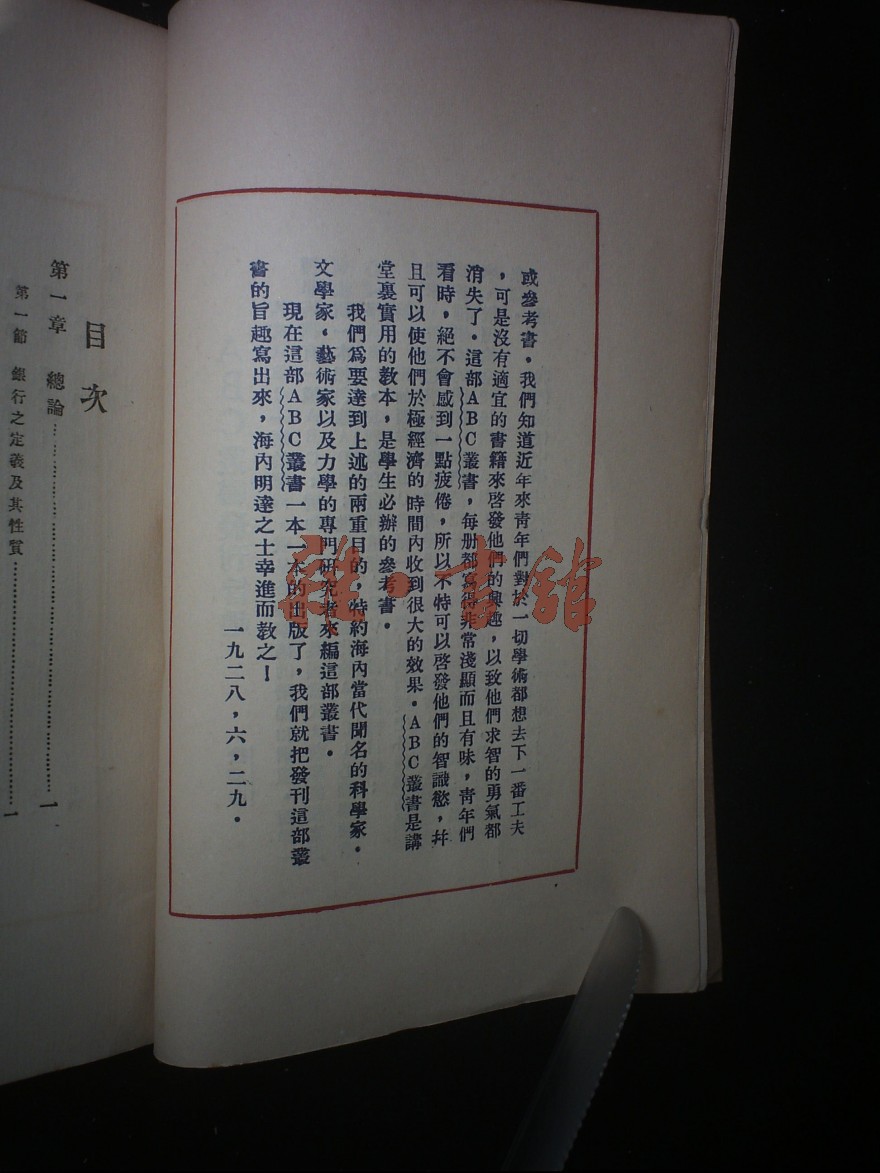 或參考書。我們知道近年來靑年們對於一切學術都想去下一番工夫
，可是沒有適宜的書籍來啓發他們的興趣，以致他們求智的勇氣都
消失了。這部ABC叢書，每册都寫得非常淺顯而且有味，靑年們
看時，絕不會感到一點疲倦，所以不特可以啓發他們的智識慾，幷
且可以使他們於極經濟的時間內收到很大的效果。ABC叢書是講
堂裏實用的敎本，是學生必辦的參考書。
我們爲要達到上述的兩重目的，特約海內當代聞名的科學家，
文學家，藝術家以及力學的專門研究者來編這部叢書。
現在這部ABC叢書一本一本的出版了，我們就把發刊這部叢
書的旨趣寫出來，海內明達之士幸進而敎之！
一九二八，六，二九。
目次
第一章 總論……………………一
第一節 銀行之定義及其性質……………………一
雜·書館